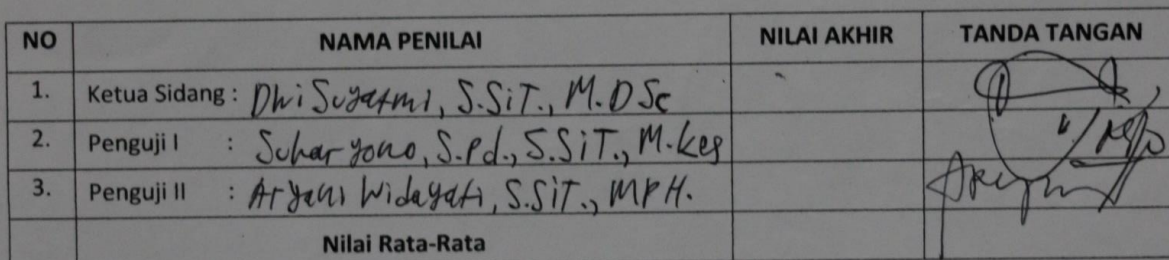 NO NAMA PENILAI NILAI AKHIR TANDA TANGAN
1. Ketua Sidang : Dwi Suyatmi, S.SiT., M.DSc
2. Penguji I : Suharyono, S.Pd., S.SiT., M.Kes
3. Penguji II : Aryani Widayati, S.SiT., MPH.
Nilai Rata-Rata